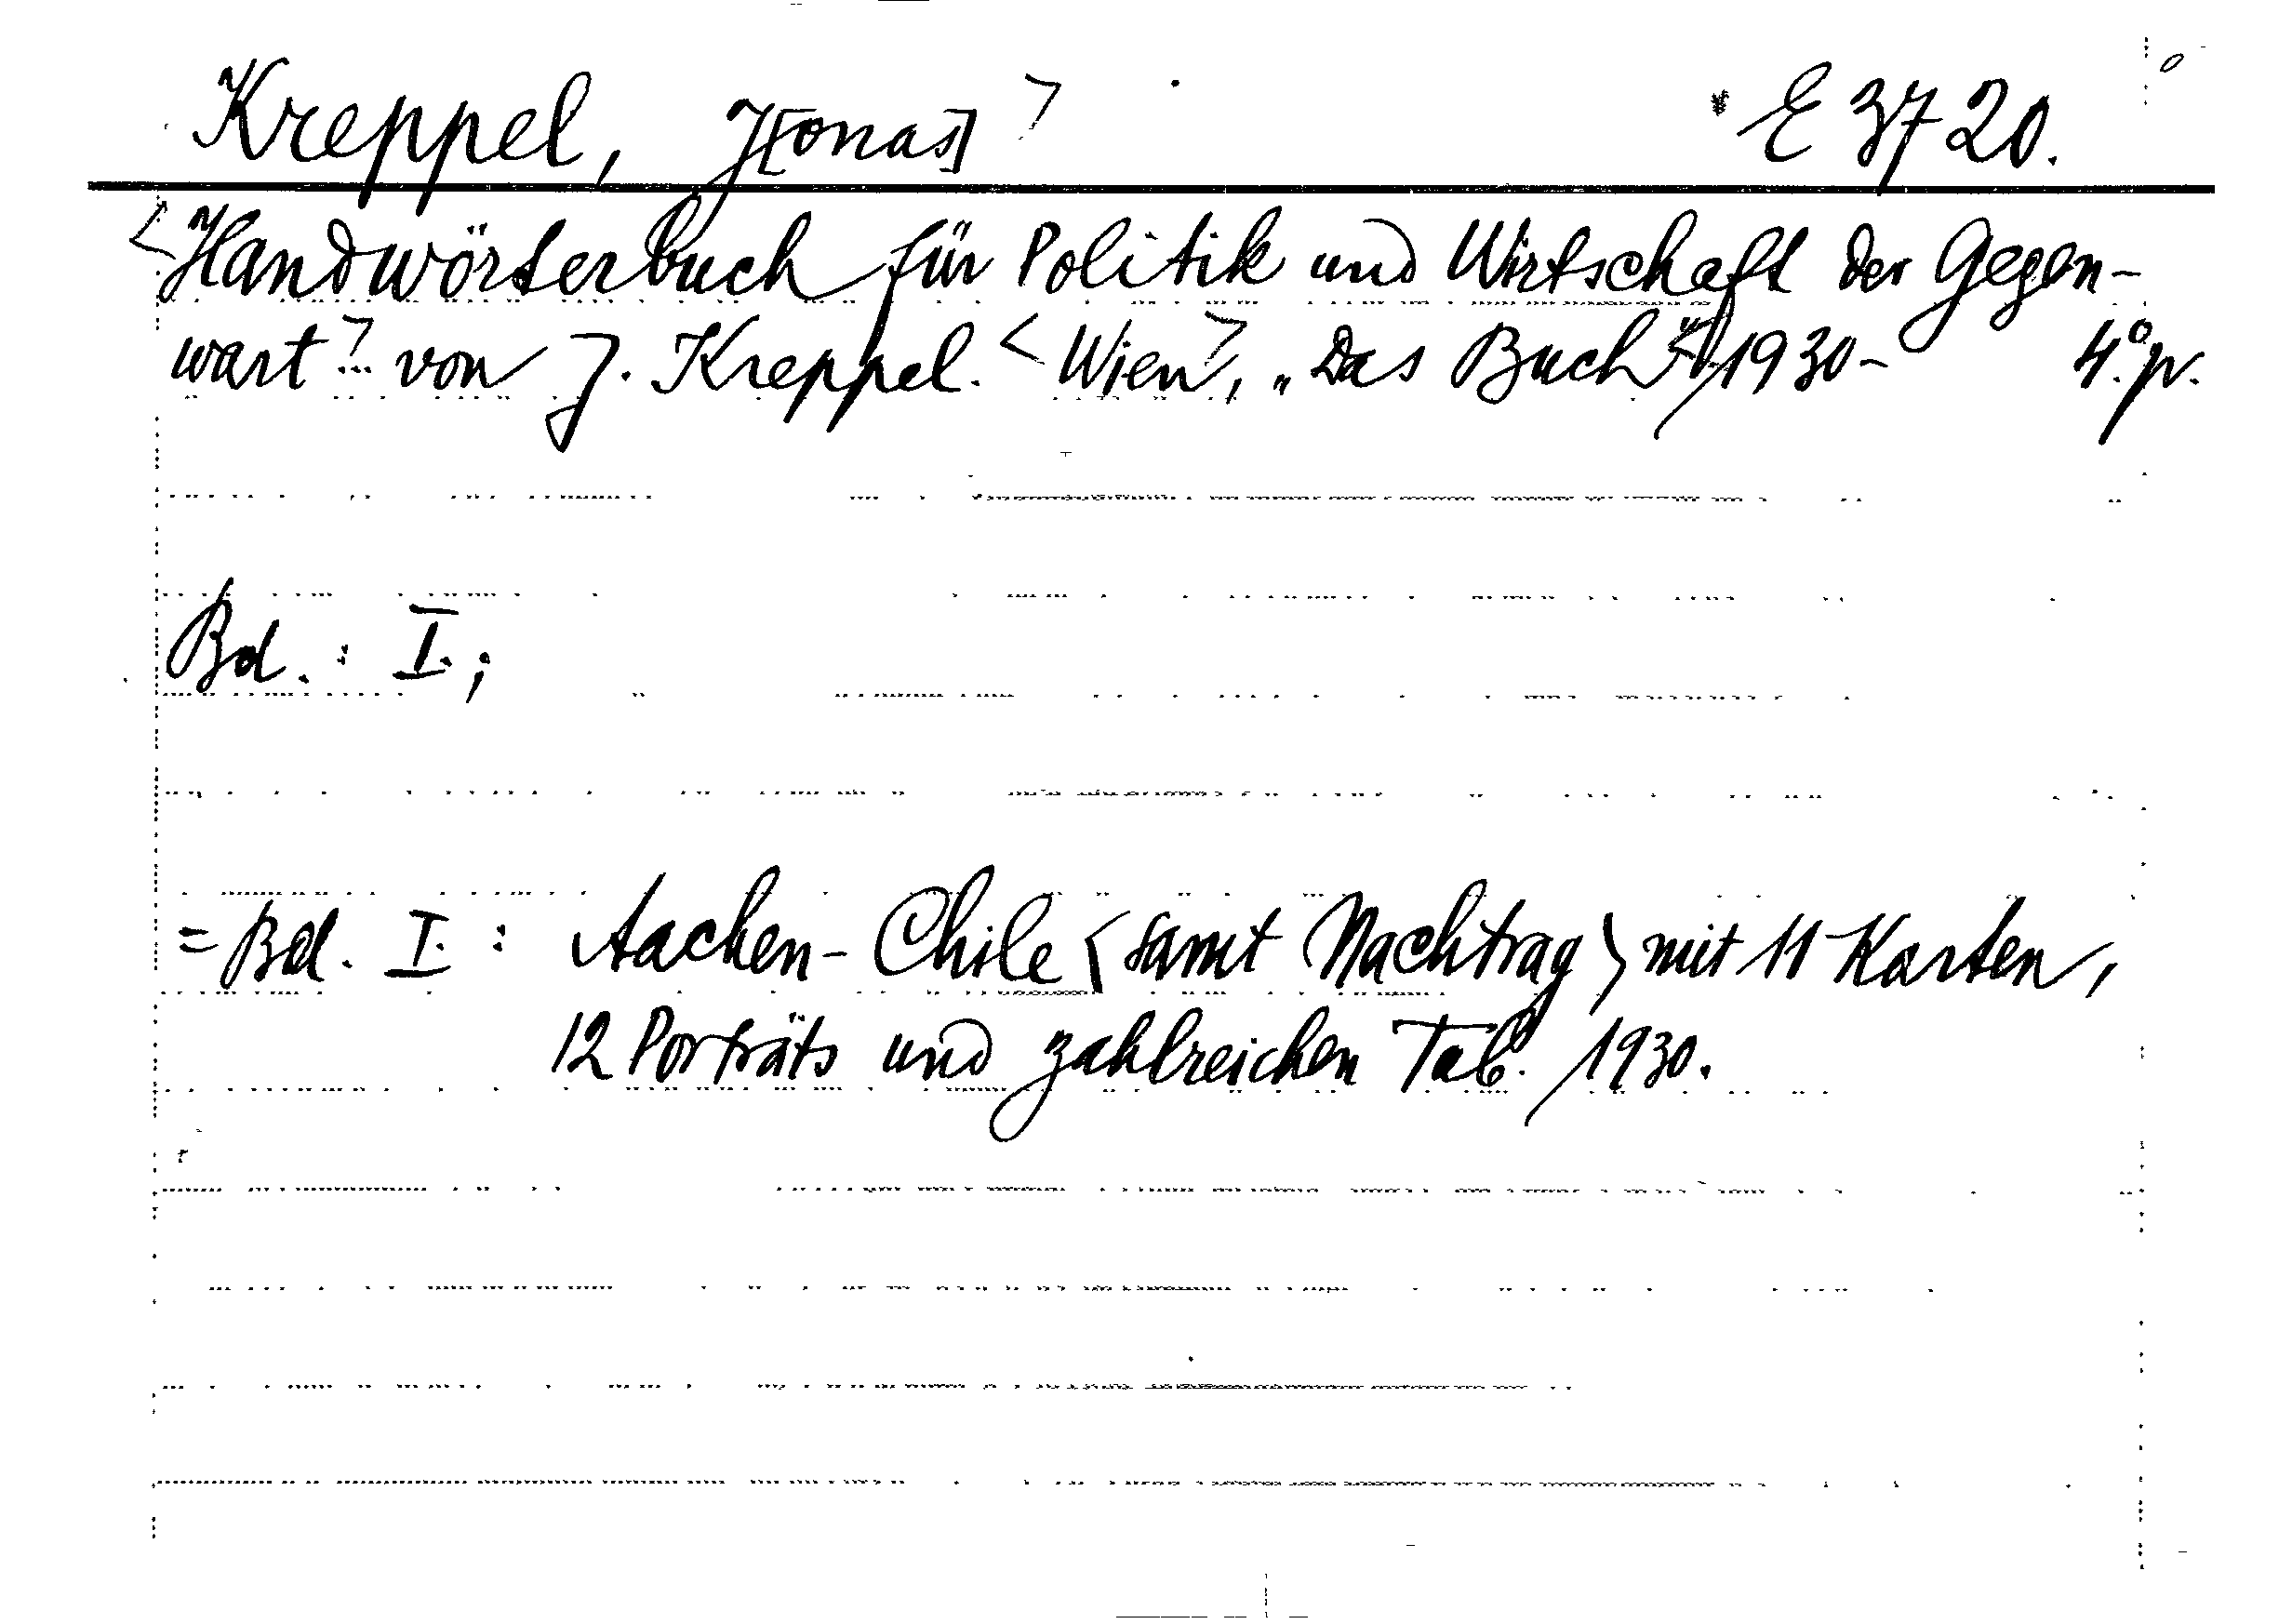 Kreppel, J[onas] > * E 3720.
<Handwörterbuch für Politik und Wirtschaft der Gegen-
wart>... von J. Kreppel. <Wien>, „Das Buch“ 1930- 4°. p.
Bd. : I.;
= Bd. I. : Aachen-Chile (samt Nachtrag) mit 11 Karten,
12 Porträts und zahlreichen Tab. 1930.